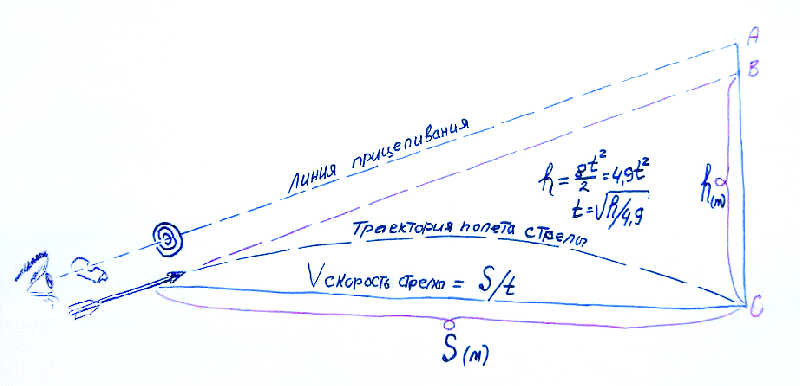 A
B
линия прицеливания
h = gt²/2 = 4,9t²
t = √h/4,9
h(м)
Траектория полета стрелы
V скорость стрелы = S/t
C
S(м)